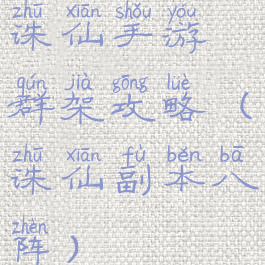 zhū xiān shǒu yóu
诛仙手游
qún jià gōng lüè
群架攻略（
zhū xiān fù běn bā
诛仙副本八
zhèn
阵）